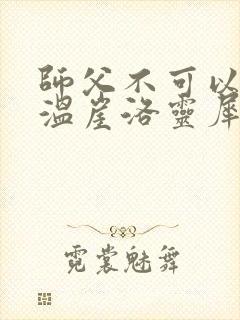 師父不可以
溫崖洛靈犀
霓裳魅舞